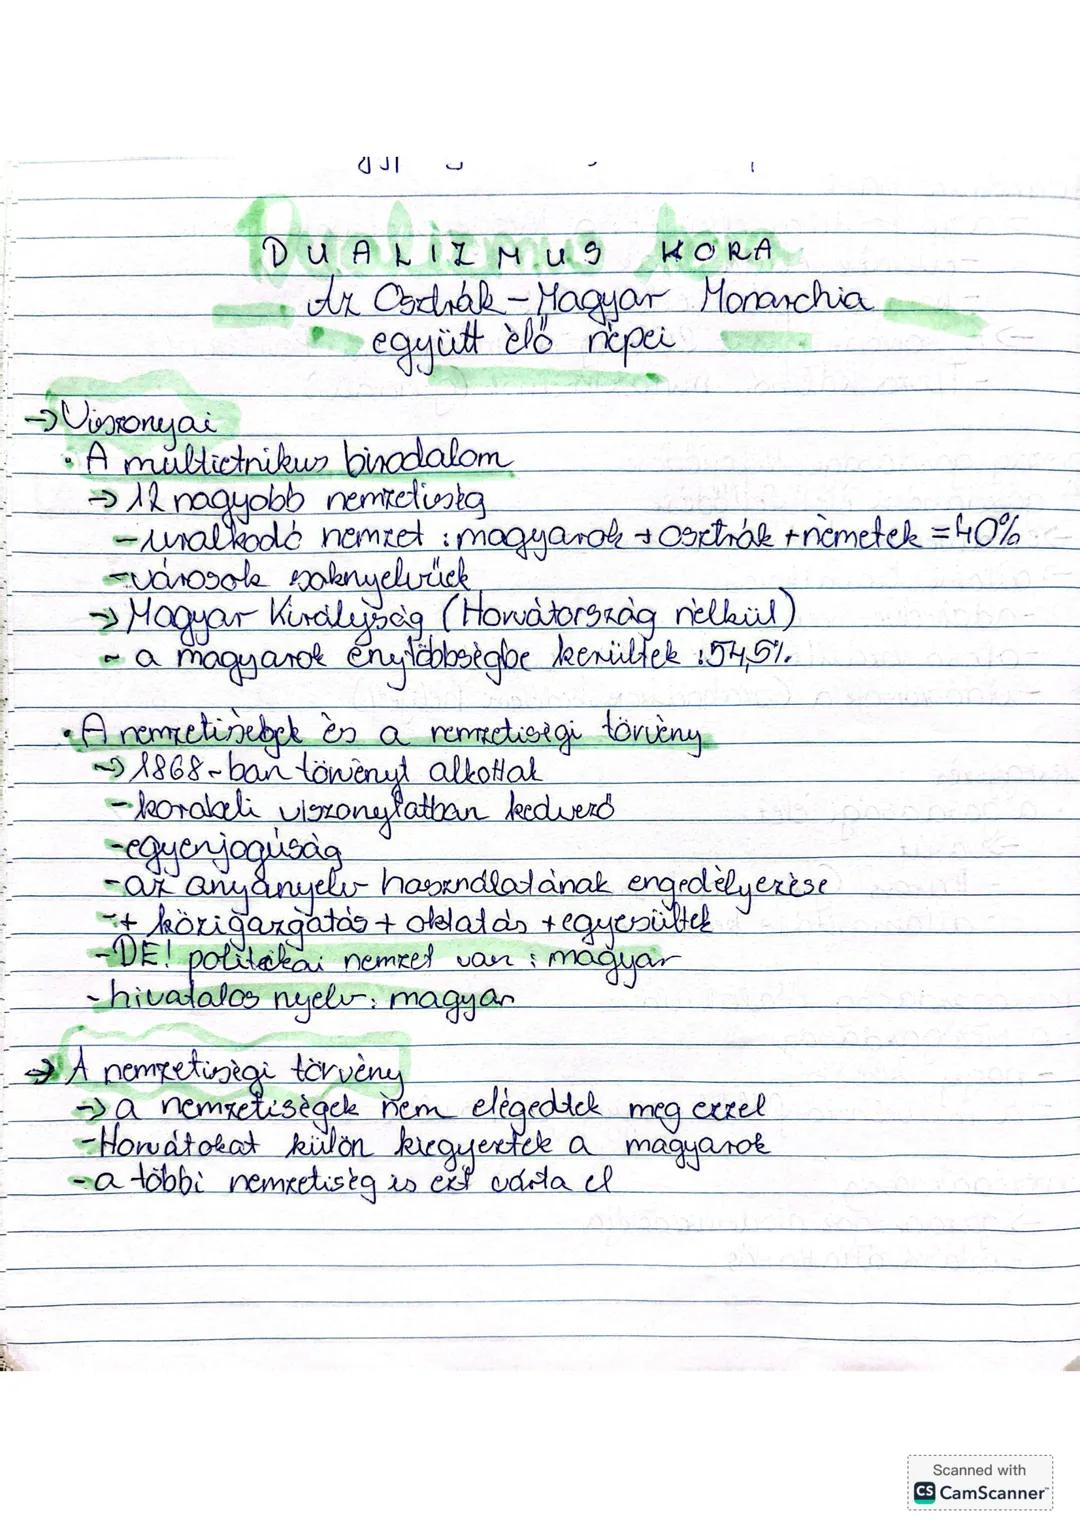 Dualizmus kora
DUALIZMUS KORA
Az Osztrák-Magyar Monarchia
együtt élő népei
→ Viszonyai
• A multietnikus birodalom
→ 12 nagyobb nemzetiség
- uralkodó nemzet: magyarok + osztrák + németek = 40%
- városok soknyelvűek
→ Magyar Királyság (Horvátország nélkül)
- a magyarok enytöbbségbe kerültek: 54,5%.
• A nemzetiségek és a nemzetiségi törvény
→ 1868-ban törvényt alkottak
- korabeli viszonylatban kedvező
- egyenjogúság
- az anyanyelv használatának engedélyezése
- + közigazgatás + oktatás + egyesültek
- DE! politikai nemzet van: magyar
- hivatalos nyelv: magyar
→ A nemzetiségi törvény
→ a nemzetiségek nem elégedtek meg ezzel
- Horvátokat külön kiegyeztek a magyarok
- a többi nemzetiség is ezt várta el
Scanned with
CS CamScanner™